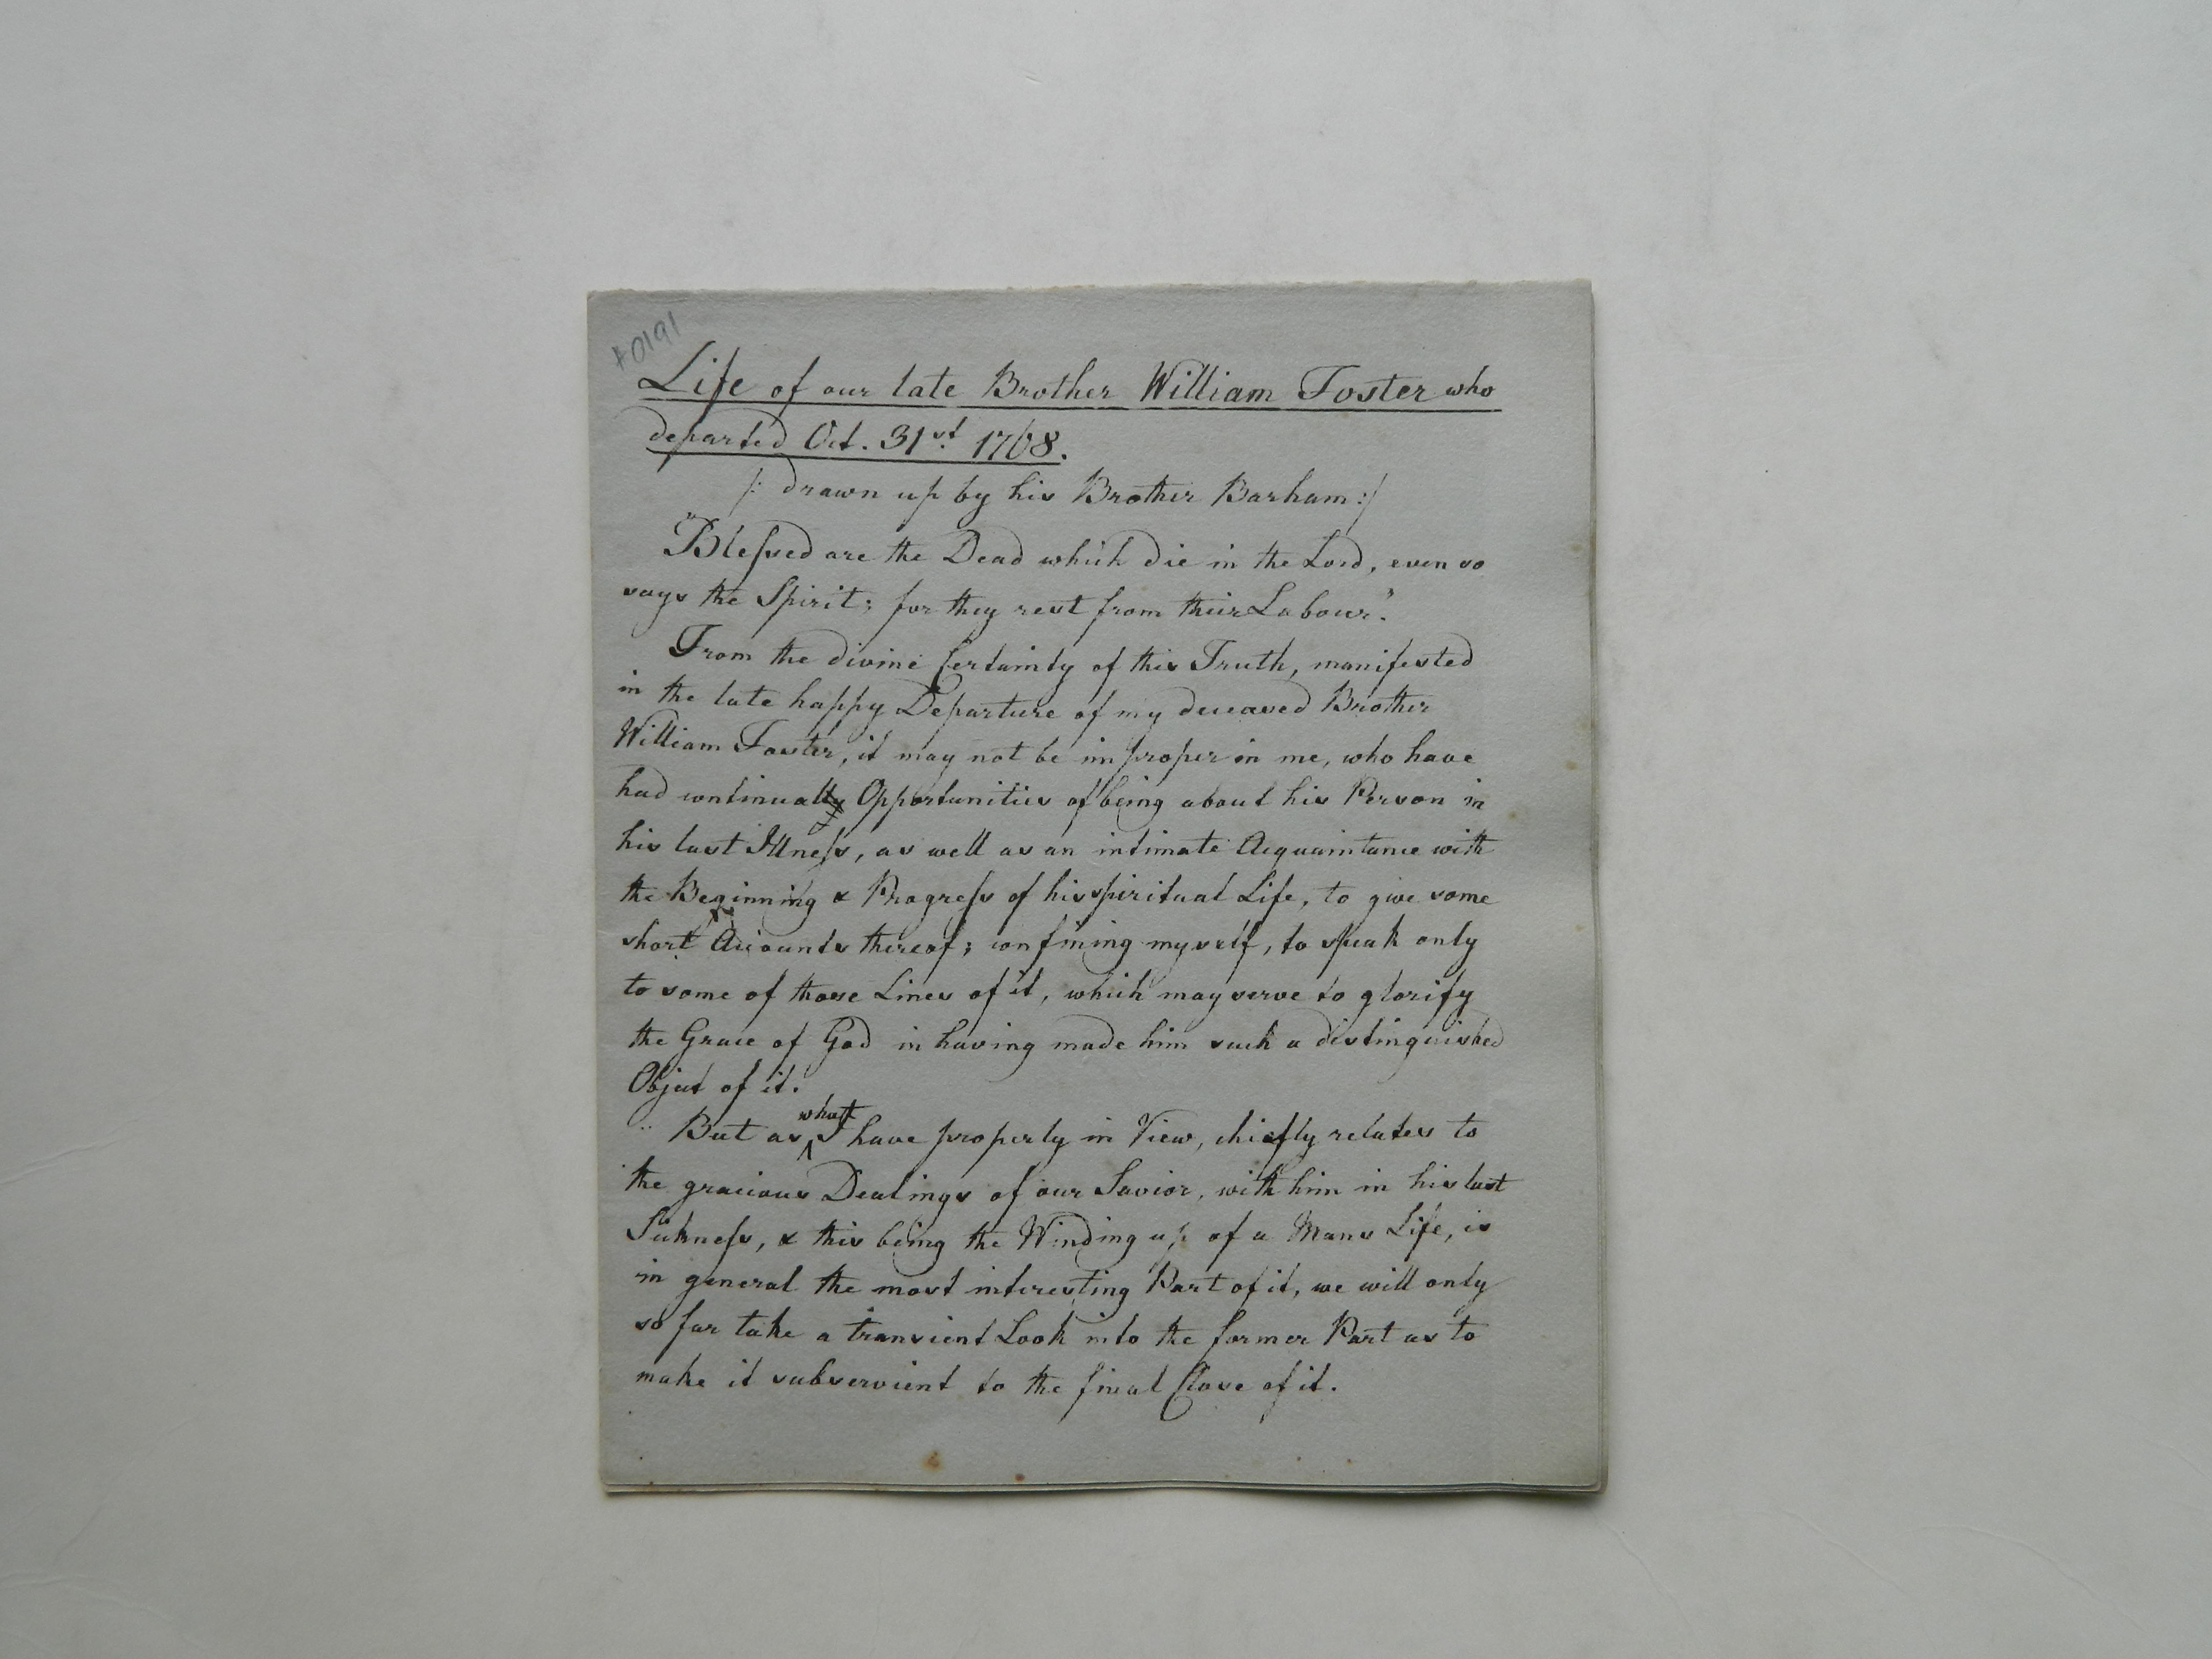 #0191
Life of our late Brother William Foster who
departed Oct. 31st. 1768.
/: drawn up by his Brother Barham :/
"Blessed are the Dead which die in the Lord, even so
says the Spirit; for they rest from their Labour".
From the divine Certainty of this Truth, manifested
in the late happy Departure of my deceased Brother
William Foster, it may not be improper in me, who have
had continually Opportunities of being about his Person in
his last Illness, as well as an intimate Acquaintance with
the Beginning & Progress of his spiritual Life, to give some
short Accounts thereof; confining myself, to speak only
to some of those Lines of it, which may serve to glorify
the Grace of God in having made him such a distinguished
Object of it.
But as what I have properly in View, chiefly relates to
the gracious Dealings of our Savior, with him in his last
Sickness, & this being the Winding up of a Mans Life, is
in general the most interesting Part of it, we will only
so far take a transient Look into the former Part as to
make it subservient to the final Close of it.